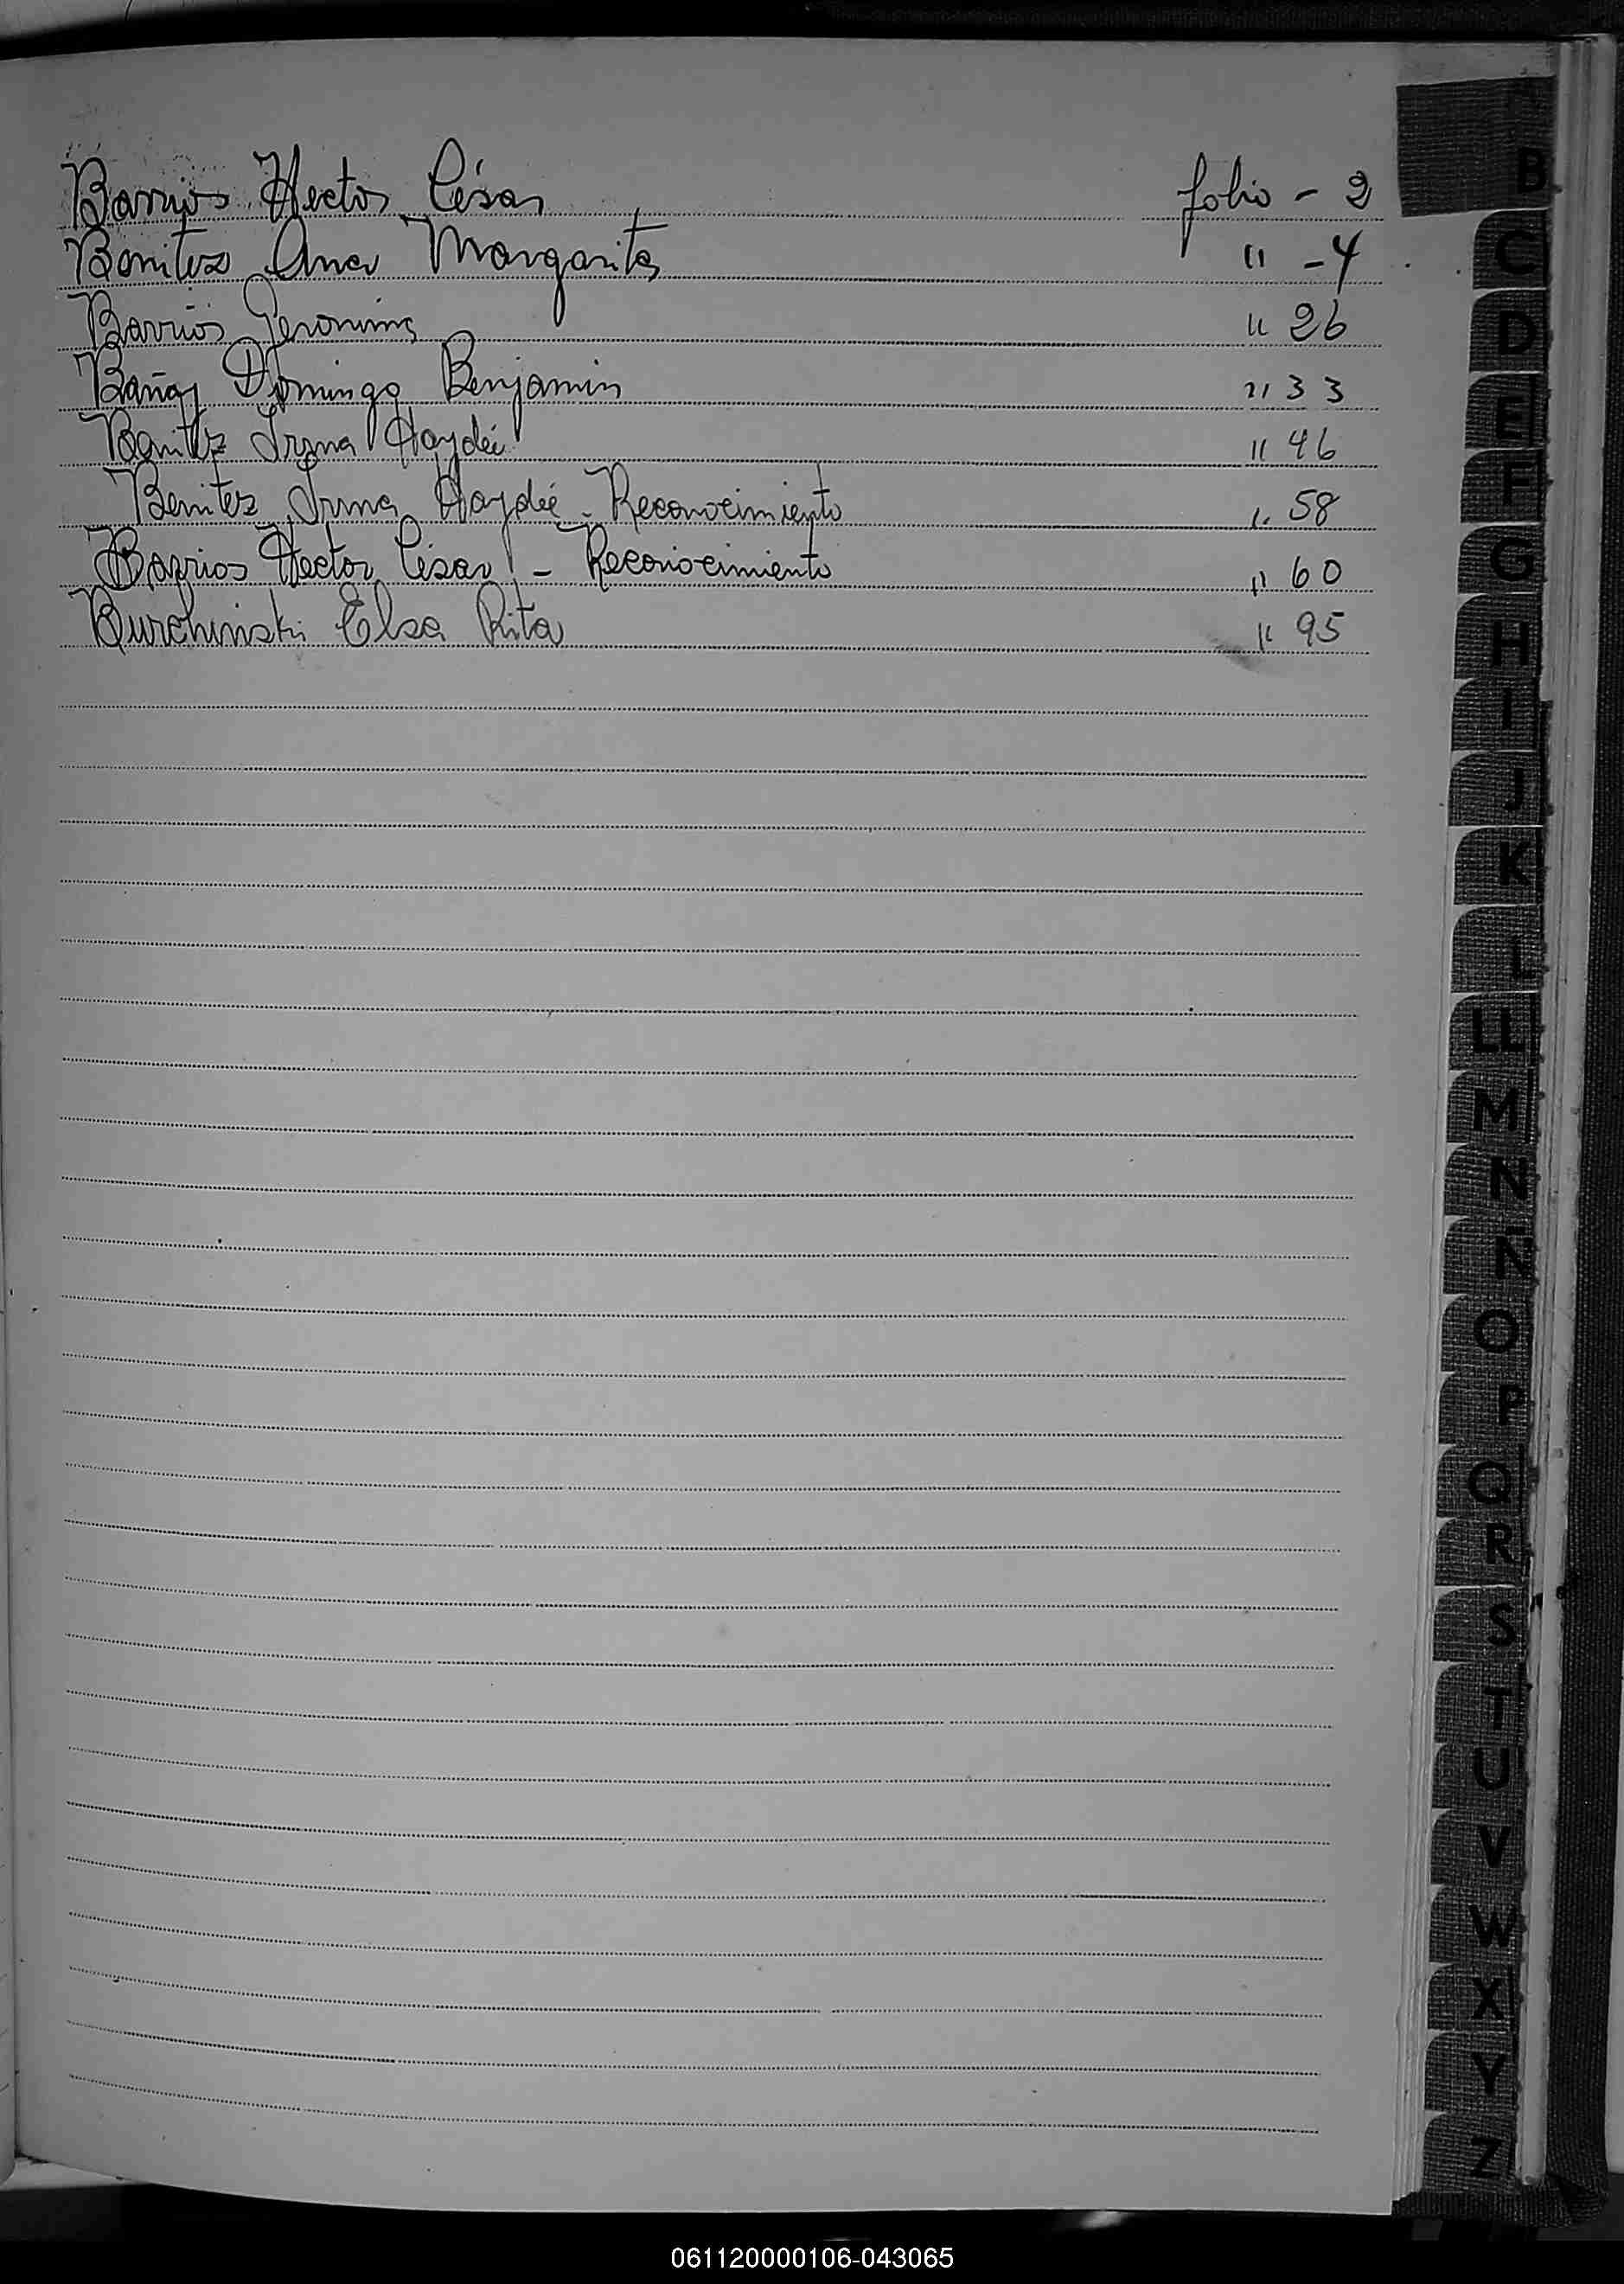 Barrios Hector César folio - 2
Benitez Ana Margarita " - 4
Barrios Jeronima " 26
Bañay Domingo Benjamin " 33
Benitez Irma Haydée " 46
Benitez Irma Haydée - Reconocimiento " 58
Barrios Hector César - Reconocimiento " 60
Burchinski Elsa Rita " 95
B
C
D
E
F
G
H
I
J
K
L
LL
M
N
Ñ
O
P
Q
R
S
T
U
V
W
X
Y
Z
061120000106-043065